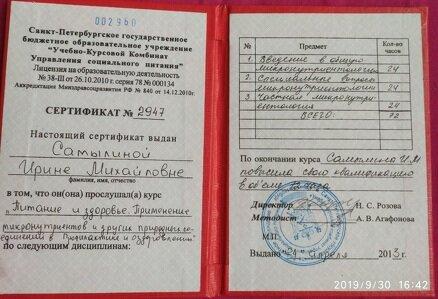 002960
Санкт-Петербургское государственное
бюджетное образовательное учреждение
"Учебно-Курсовой Комбинат
Управления социального питания"
Лицензия на образовательную деятельность
№ 38-III от 26.10.2010 г. серия 78 № 000134
Аккредитация Минздравсоцразвития РФ № 840 от 14.12.2010г.
СЕРТИФИКАТ № 2947
Настоящий сертификат выдан
Самылиной
Ирине Михайловне
фамилия, имя, отчество
в том, что он(она) прослушал(а) курс
"Питание и здоровье. Применение
микронутриентов и других природных со-
единений в профилактике и оздоровлении"
по следующим дисциплинам:
№ Предмет Кол-во часов
1. Введение в общую
микронутриентологию 24
2. Специальные вопросы
микронутриентологии 24
3. Частная микронутри-
ентология 24
ВСЕГО: 72
По окончании курса Самылина И.М.
повысила свою квалификацию
в объёме
Директор Н. С. Розова
Методист А. В. Агафонова
М.П.
Выдано апреля 2013 г.
2019/9/30 16:42